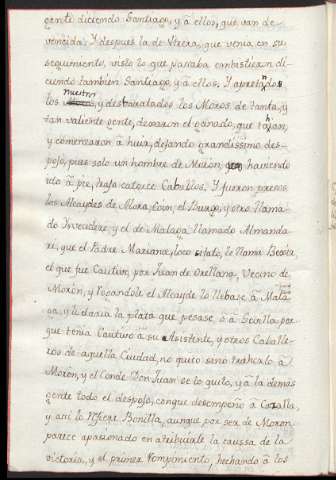 gente diciendo Santiago, y á ellos, que van de
vencida. Y despues la de Utrera, que venia en su
seguimiento, visto lo que pasaba embistieron di-
ciendo tambien Santiago, y á ellos. Y apretandolos
los nuestros, y desbaratados los Moros de tanta, y
tan valiente gente, dexaron el ganado, que trahian,
y comenzaron á huir, dejando grandissimo des-
pojo, pues solo un hombre de Morón, haviendo
ido á pie, trajo catorce Caballos. Y fueron presos
los Alcaydes de Mora, Coin, el Burgo, y otro llama-
do y el de Malaga llamado
que el Padre Mariana, loco citato, le llama
el que fue Cautivo, por Juan de Orellana, Vecino de
Morón, y rogandole el Alcayde lo llebase á Mala-
ga, y le daria la plata que pesase, ó á Sevilla por-
que tenia Cautivo á su Asistente, y otros Caballe-
ros de aquella Ciudad, no quiso sino traherlo á
Morón, y el Conde Don Juan se lo quitó, y á la demás
gente todo el despojo, conque desempeñó á Cazalla,
y asi lo refiere Bonilla, aunque por ser de Moron
parece apasionado en atribuirle la caussa de la
victoria, y el primer rompimiento, hechando á los